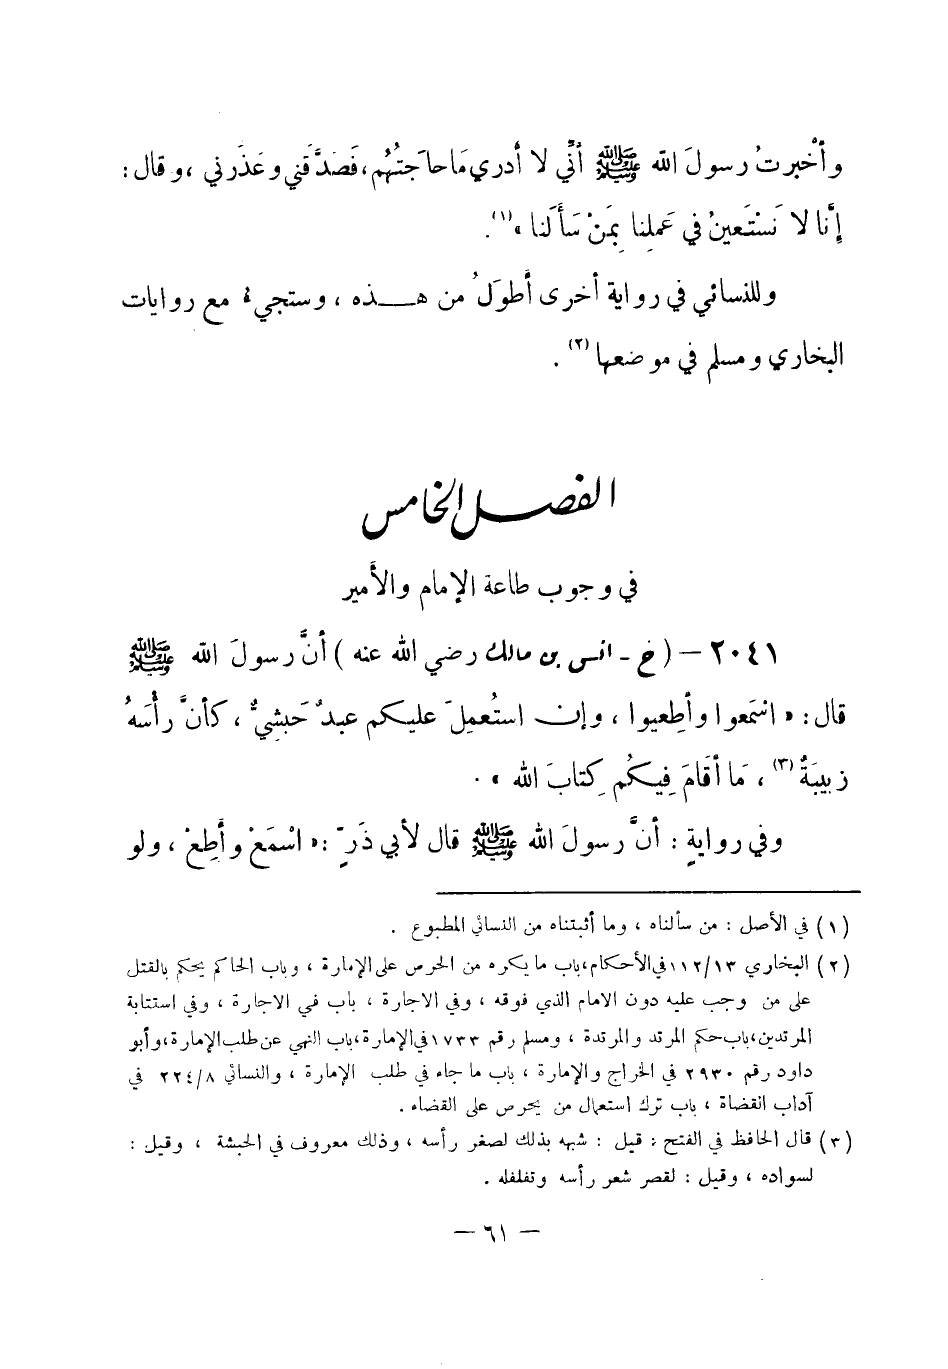 وأخْبرتُ رسولَ الله ﷺ أنِّي لا أدري مَا حاجَتُهُم، فَصَدَّقَني وعَذَرَني ، وقال :
إنَّا لا نَسْتَعينُ في عَمِلنا بِمَنْ سَأَلَنا »(١).
وللنسائي في رواية أخرى أطولُ من هــذه ، وستجيء مع روايات
البخاري ومسلم في موضعها (٢) .
الفصل الخامس
في وجوب طاعة الإمام والأمير
٢٠٤١ – ( خ - انس بن مالك رضي الله عنه ) أنَّ رسولَ الله ﷺ
قال : « اسْمَعوا وأطِعيوا ، وإن استُعمِلَ عليكم عبدٌ حَبشِيٌّ ، كأنَّ رأسَهُ
زبِيبَةٌ (٣) ، مَا أقَامَ فِيكُم كِتابَ الله » .
وفي روايةٍ : أنَّ رسولَ الله ﷺ قال لأبي ذَرٍّ : « اسْمَعْ وأطِعْ ، ولو
(١) في الأصل : من سألناه ، وما أثبتناه من النسائي المطبوع .
(٢) البخاري ١١٢/١٣ في الأحكام، باب ما يكره من الحرص على الإمارة ، وباب الحاكم يحكم بالقتل
على من وجب عليه دون الامام الذي فوقه ، وفي الاجارة ، باب في الاجارة ، وفي استتابة
المرتدين، باب حكم المرتد والمرتدة ، ومسلم رقم ١٧٣٣ في الإمارة، باب النهي عن طلب الإمارة، وأبو
داود رقم ٢٩٣٠ في الخراج والإمارة ، باب ما جاء في طلب الإمارة ، والنسائي ٢٢٤/٨ في
آداب القضاة ، باب ترك استعمال من يحرص على القضاء .
(٣) قال الحافظ في الفتح : قيل : شبهه بذلك لصغر رأسه ، وذلك معروف في الحبشة ، وقيل :
لسواده ، وقيل : لقصر شعر رأسه وتفلفله .
– ٦١ –